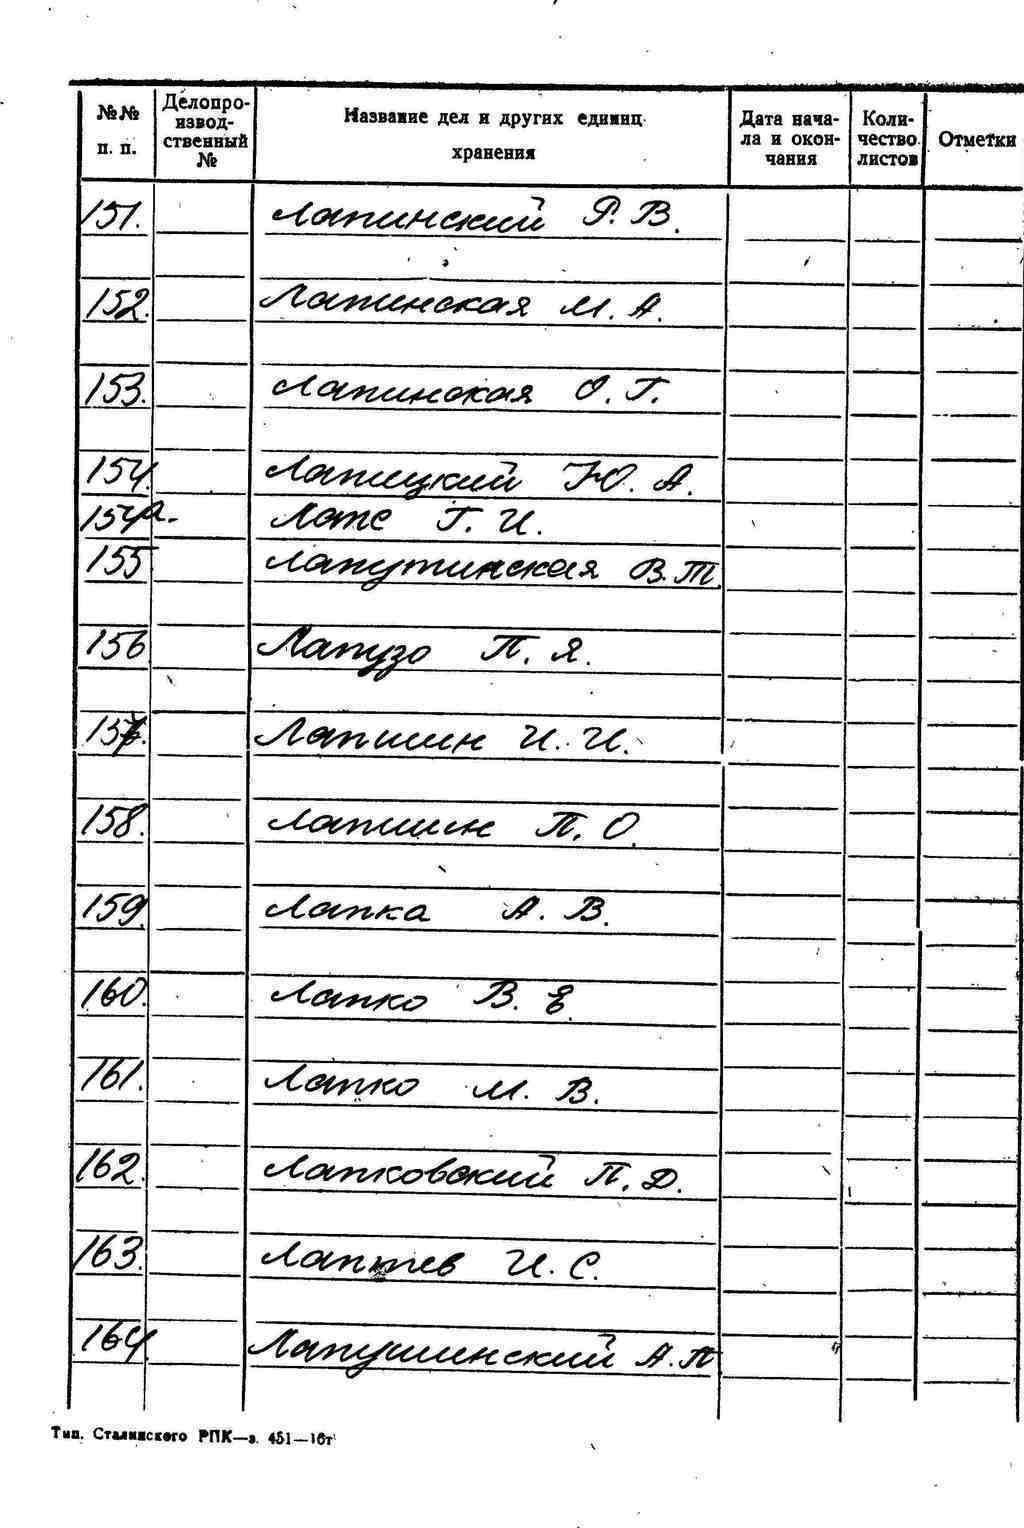 №№ п. п. Делопроизводственный № Название дел и других единиц хранения Дата начала и окончания Количество листов Отметки
151. Лапинский Р. В.
152. Лапинская М. А.
153. Лапинская О. Г.
154. Лапицкий Ю. А.
154а. Лапс Г. И.
155 Лапутинская В. Т.
156 Лапузо П. Я.
157. Лапшин И. И.
158. Лапшин П. О.
159. Лапка А. В.
160. Лапко В. Е.
161. Лапко М. В.
162. Лапковский П. Д.
163. Лаптев И. С.
164. Лапушинский А. П.
Тип. Сталинского РПК—з. 451—16т